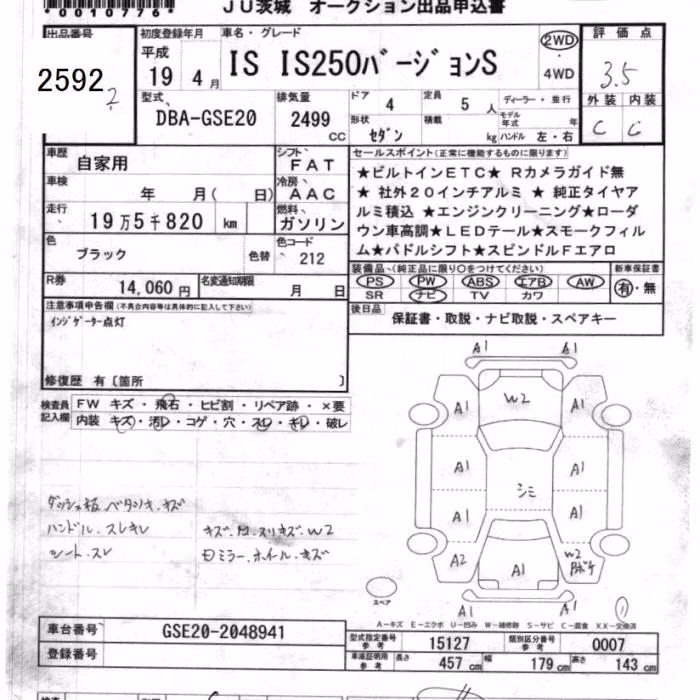 *0010776*
JU茨城 オークション出品申込書
出品番号
2592
2
初度登録年月
平成
19 4月
車名・グレード
IS IS250バージョンS
2WD
・
4WD
評価点
3.5
外装 内装
C C
型式
DBA-GSE20
排気量
2499
CC
ドア 4
定員 5人
形状 セダン
積載 kg
ディーラー・並行
モデル年式 年
ハンドル 左・右
車歴
自家用
シフト
FAT
車検
年 月( 日)
冷房
AAC
走行
19万5千820 km
燃料
ガソリン
色
ブラック
色替
色コード
212
R券
14,060円
名変通知期限
月 日
セールスポイント(正常に機能するものに限ります)
★ビルトインETC★ Rカメラガイド無
★ 社外20インチアルミ ★ 純正タイヤア
ルミ積込 ★エンジンクリーニング★ローダ
ウン車高調★LEDテール★スモークフィル
ム★パドルシフト★スピンドルFエアロ
装備品(純正品に限り○をつけてください)
PS PW ABS エアB AW
SR ナビ TV カワ
新車保証書
有・無
後日品
保証書・取説・ナビ取説・スペアキー
注意事項申告欄(不具合内容等は具体的に記入して下さい)
インジゲーター点灯
修復歴 有〔箇所 〕
検査員
記入欄
FW キズ・飛石・ヒビ割・リペア跡・×要
内装 キズ・汚レ・コゲ・穴・スレ・キレ・破レ
ダッシュ板 ベタツキ、キズ
ハンドル・スレキレ
シート・スレ
キズ・凹・スリキズ・W2
ミラー、ホイール・キズ
A1 A1
A1 W2 A1
A1 A1
シミ
A1 A1
A2 A1 W2
A1 A1
スペア
1
A-キズ E-エクボ U-凹み W-補修跡 S-サビ C-腐食 XX-交換済
車台番号
GSE20-2048941
登録番号
型式指定番号
参考
15127
類別区分番号
参考
0007
車庫証明用
参考
長さ 457cm 幅 179cm 高さ 143cm